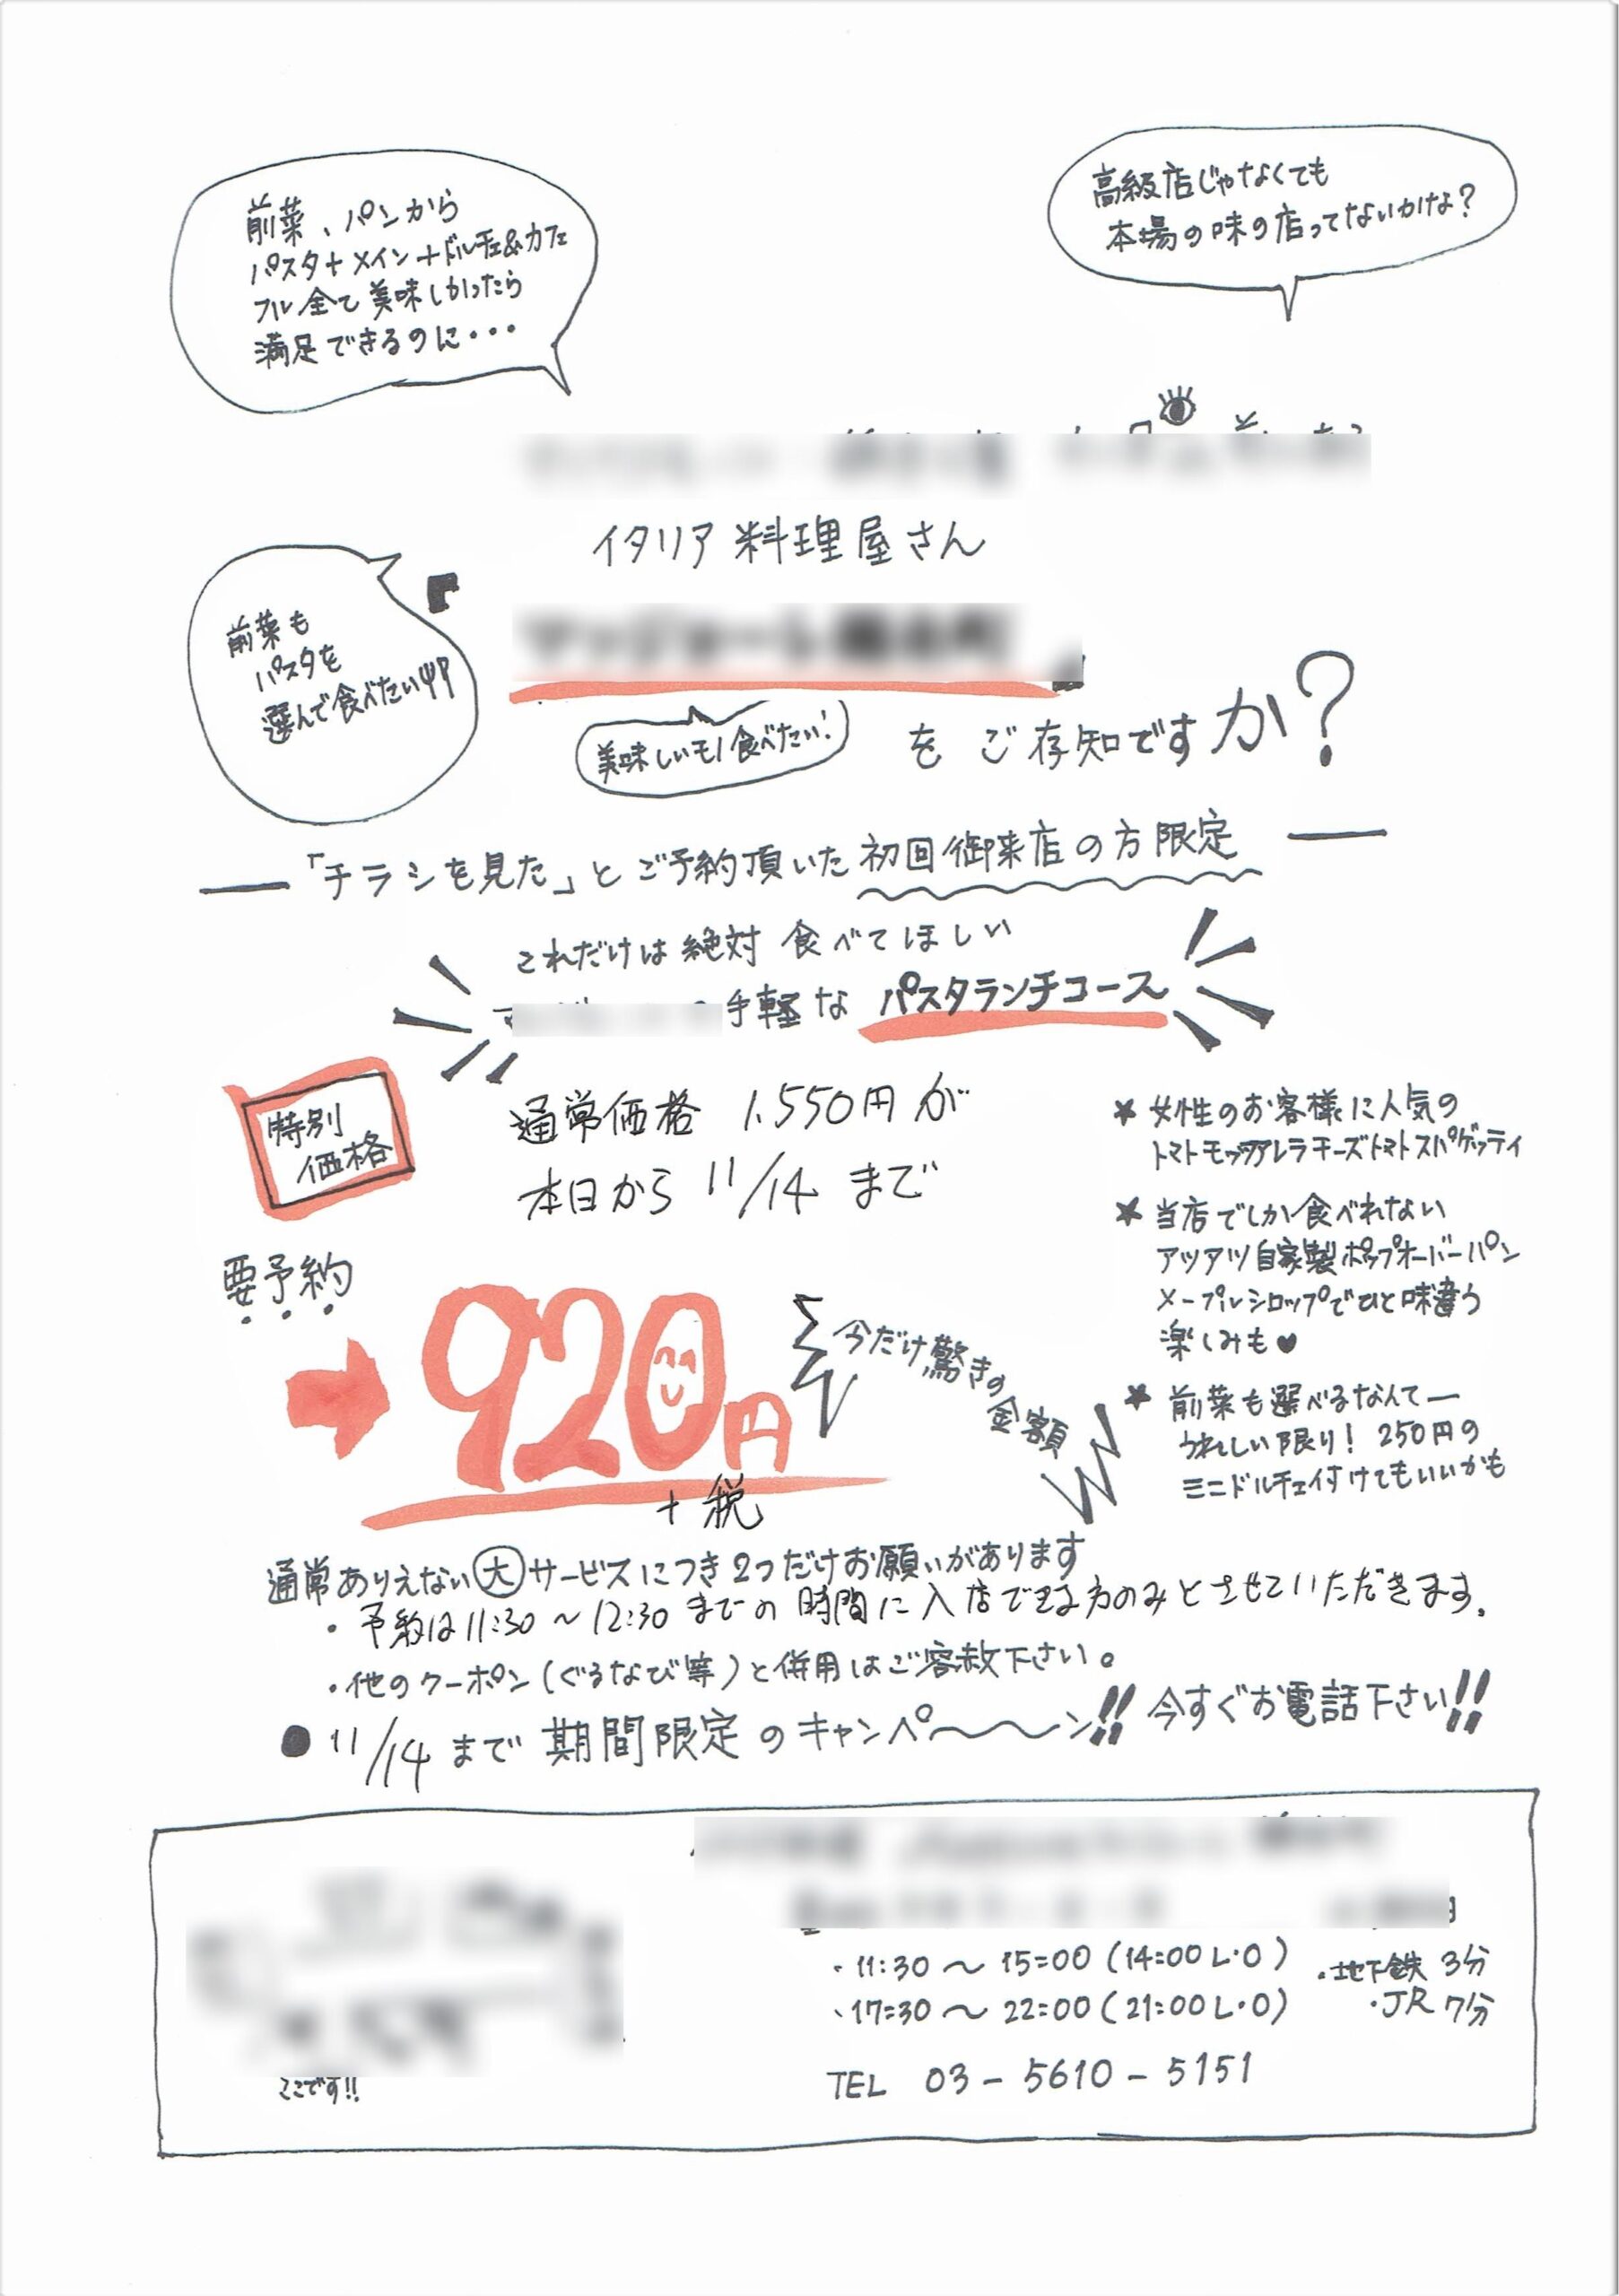 前菜、パンから
パスタ+メイン+ドルチェ&カフェ
フル全て美味しかったら
満足できるのに・・・
高級店じゃなくても
本場の味の店ってないかけな?
イタリア料理屋さん
前菜も
パスタを
選んで食べたい
美味しいモノ食べたい!
をご存知ですか?
「チラシを見た」とご予約頂いた初回御来店の方限定
これだけは絶対食べてほしい
手軽なパスタランチコース
特別
価格
通常価格 1.550円が
本日から 11/14 まで
要予約
920円
+税
今だけ驚きの金額
★女性のお客様に人気の
トマトモッツアレラチーズトマトスパゲッティ
★当店でしか食べれない
アツアツ自家製ポップオーバーパン
メープルシロップでひと味違う
楽しみも♥
★前菜も選べるなんてー
うれしい限り! 250円の
ミニドルチェ付けてもいいかも
通常ありえない大サービスにつき2つだけお願いがあります
・予約は11:30～12:30までの時間に入店できる方のみとさせていただきます。
・他のクーポン(ぐるなび等)と併用はご容赦下さい。
●11/14まで期間限定のキャンペ～～ン!! 今すぐお電話下さい!!
ここです!!
・11:30～15:00(14:00 L・O)
・17:30～22:00(21:00 L・O)
・地下鉄 3分
・JR 7分
TEL 03-5610-5151